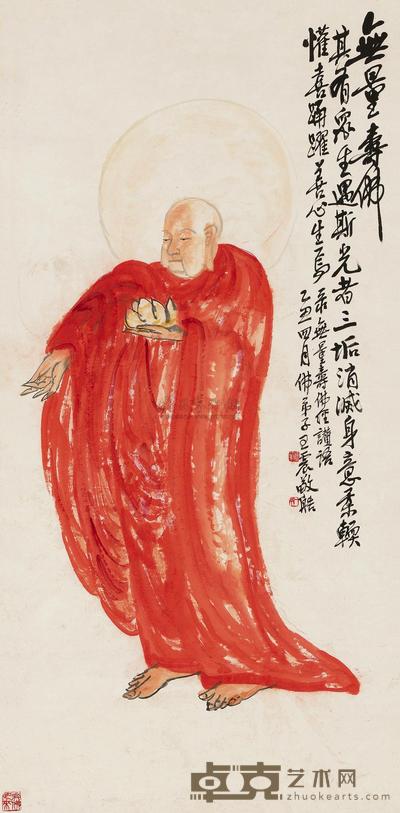 無量壽佛
其有眾生遇斯光者三垢消滅身意柔輭
懽喜踊躍善心生焉
录無量壽佛經讚語
乙丑四月佛弟子王震敬皓
卓克艺术网
zhuokearts.com